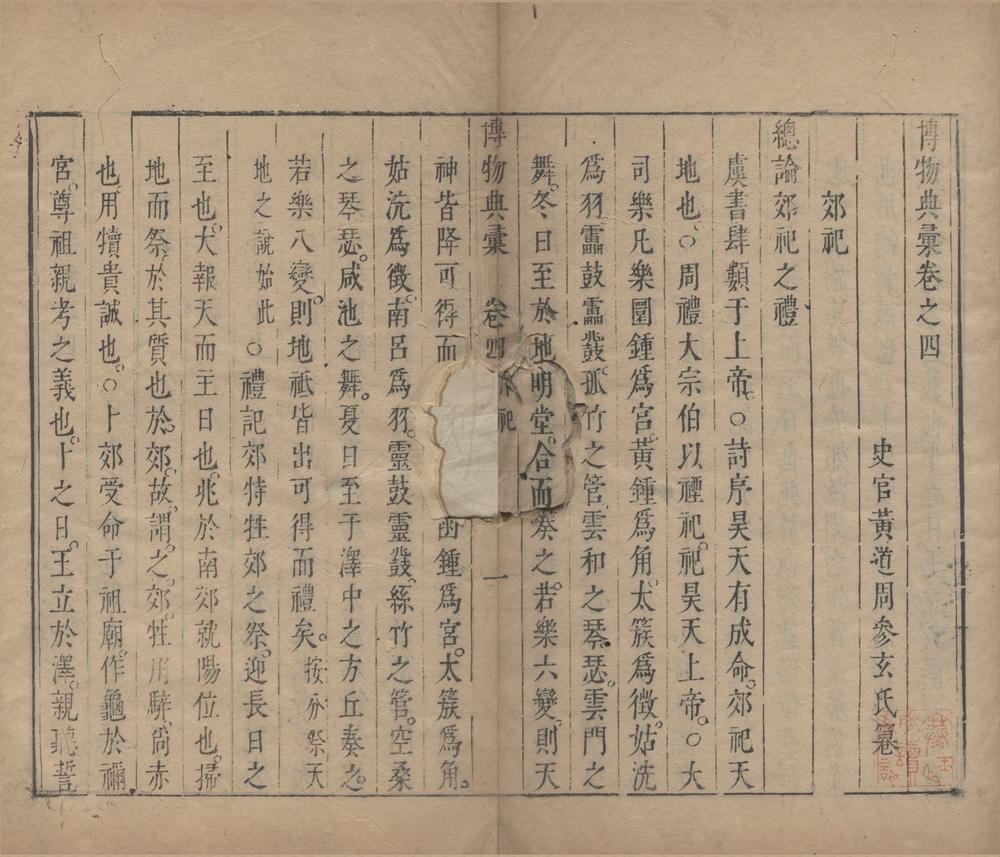 博物典彙卷之四
史官黃道周參玄氏纂
郊祀
總論郊祀之禮
虞書肆類于上帝○詩序昊天有成命郊祀天
地也○周禮大宗伯以禋祀祀昊天上帝○大
司樂凡樂圜鍾爲宮黃鍾爲角太簇爲徵姑洗
爲羽靁鼓靁鼗孤竹之管雲和之琴瑟雲門之
舞冬日至於地明堂合而奏之若樂六變則天
博物典彙 卷四 郊祀 一
神皆降可得而 函鍾爲宮太簇爲角
姑洗爲徵南呂爲羽靈鼓靈鼗絲竹之管空桑
之琴瑟咸池之舞夏日至于澤中之方丘奏之
若樂八變則地祇皆出可得而禮矣按分祭天
地之說始此○禮記郊特牲郊之祭迎長日之
至也大報天而主日也兆於南郊就陽位也掃
地而祭於其質也於郊故謂之郊牲用騂尚赤
也用犢貴誠也○卜郊受命于祖廟作龜於禰
宮尊祖親考之義也卜之日王立於澤親聽誓